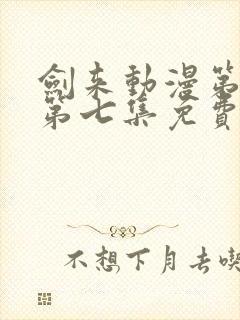 劍来動漫第
第七集免費
不想下月去喫